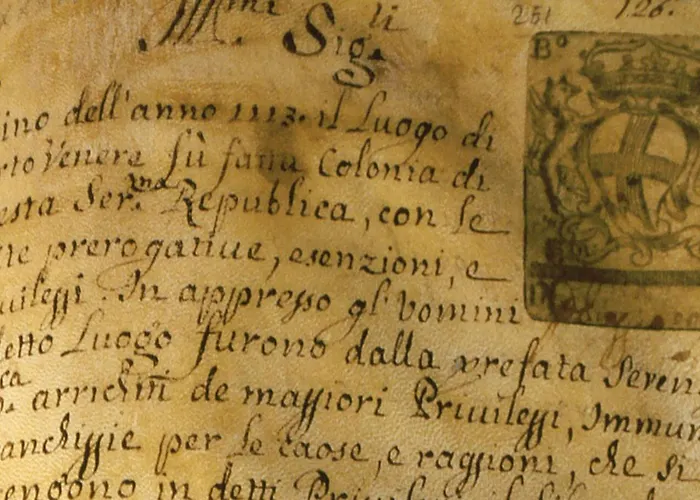 Ill.mi Sig.li
251 126.
B°
ino dell'anno 1113. il Luogo di
rto Venere fù fatta Colonia di
esta Ser.ma Republica, con le
te prerogatiue, esenzioni, e
uileggi. In appresso gl'Vomini
detto Luogo furono dalla prefata Seren
ca arrichiti de maggiori Priuileggi, Immun
anchiggie per le cose, e raggioni, che si
engono in detti